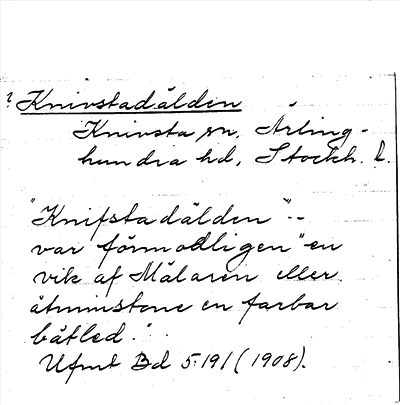 ? Knivstadälden
Knivsta sn, Ärling-
hundra hd, Stockh. L.
"Knifstadälden" --
var förmodligen "en
vik af Mälaren eller
åtminstone en farbar
båtled."
Ufmt Bd 5:191 (1908).